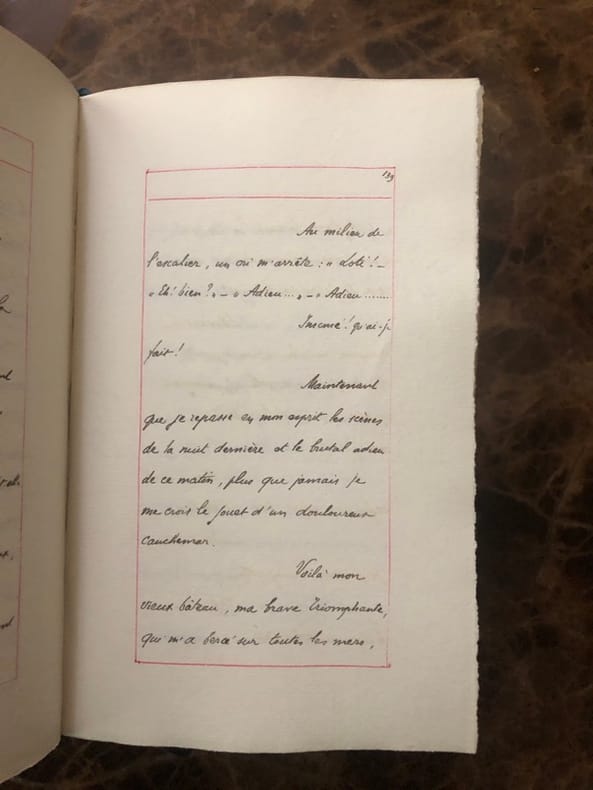 139
Au milieu de
l'escalier, un cri m'arrête : « Loti ! –
« Eh ! bien ? » – « Adieu ... » – « Adieu ........
Insensé ! qu'ai-je
fait !
Maintenant
que je repasse en mon esprit les scènes
de la nuit dernière et le brutal adieu
de ce matin, plus que jamais je
me crois le jouet d'un douloureux
cauchemar.
Voilà mon
vieux bâteau, ma brave Triomphante,
qui m'a bercé sur toutes les mers,